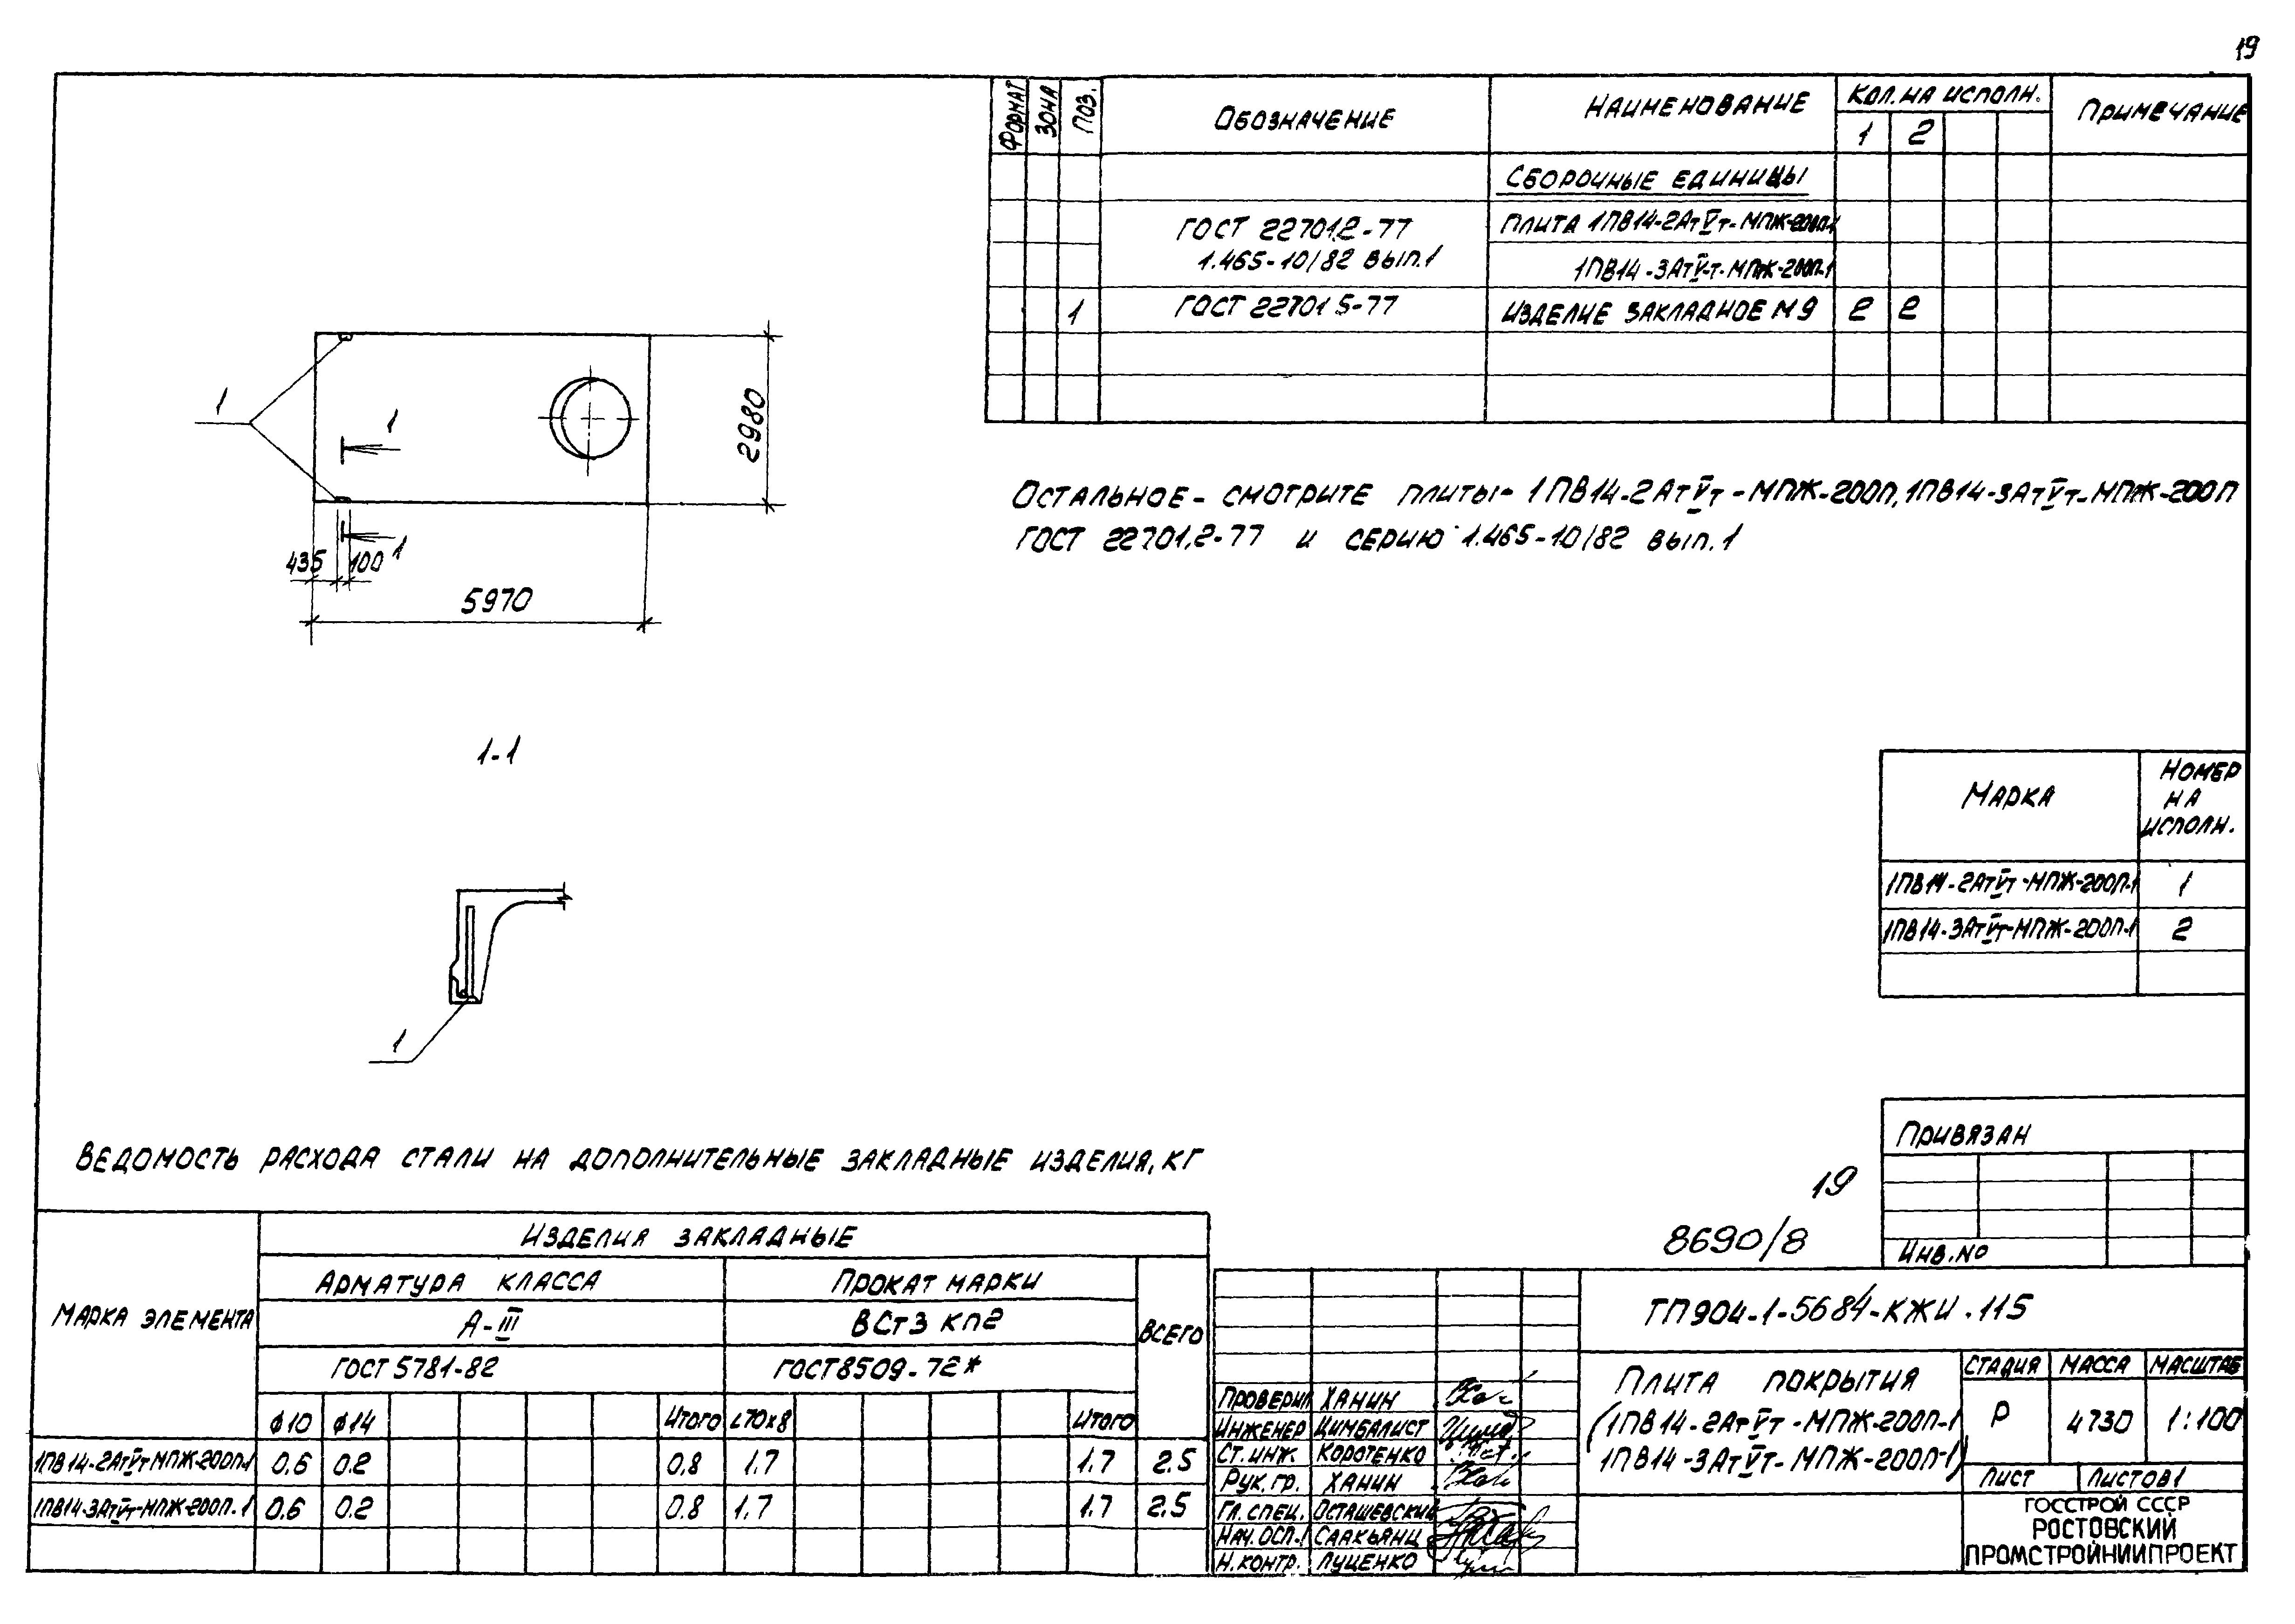 19
Формат Зона Поз. Обозначение Наименование Кол. на исполн. Примечание
1 2
Сборочные единицы
ГОСТ 22701.2-77 Плита 1ПВ14-2АтVт-МПЖ-200П-1
1.465-10/82 вып.1 1ПВ14-3АтVт-МПЖ-200П-1
1 ГОСТ 22701.5-77 Изделие закладное М9 2 2
1
1
2980
1
435 100
5970
Остальное - смотрите плиты- 1ПВ14-2АтVт-МПЖ-200П, 1ПВ14-3АтVт-МПЖ-200П
ГОСТ 22701.2-77 и серию 1.465-10/82 вып.1
1-1
1
Марка Номер на исполн.
1ПВ14-2АтVт-МПЖ-200П-1 1
1ПВ14-3АтVт-МПЖ-200П-1 2
Привязан
Инв.№
19
8690/8
Ведомость расхода стали на дополнительные закладные изделия, кг
Марка элемента Изделия закладные
Арматура класса Прокат марки Всего
А-III ВСт3 кп2
ГОСТ 5781-82 ГОСТ 8509-72*
ф10 ф14 Итого L70х8 Итого
1ПВ14-2АтVт-МПЖ-200П-1 0.6 0.2 0.8 1.7 1.7 2.5
1ПВ14-3АтVт-МПЖ-200П-1 0.6 0.2 0.8 1.7 1.7 2.5
ТП904-1-5684-КЖИ.115
Проверил Ханин
Инженер Цимбалист
Ст.инж. Коротенко
Рук.гр. Ханин
Гл.спец. Осташевский
Нач.осп.1 Саакьянц
Н.контр. Луценко
Плита покрытия
(1ПВ14-2АтVт-МПЖ-200П-1
1ПВ14-3АтVт-МПЖ-200П-1)
Стадия Масса Масштаб
Р 4730 1:100
Лист Листов 1
ГОССТРОЙ СССР
РОСТОВСКИЙ
ПРОМСТРОЙНИИПРОЕКТ